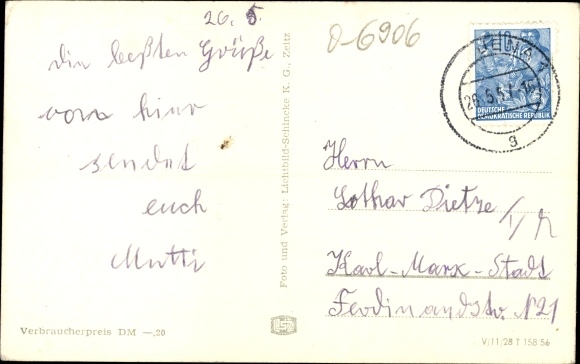 26. 5.
die beßten Grüße
vorn hier
sendet
euch
Mutti
0-6906
JENA
26.5.57
g
DEUTSCHE
DEMOKRATISCHE REPUBLIK
Herrn
Lothar Dietze
Karl-Marx-Stadt
Ferdinandstr. N 21
Foto und Verlag: Lichtbild-Schincke K. G., Zeitz
Verbraucherpreis DM —,20
V/11/28 T 158 56